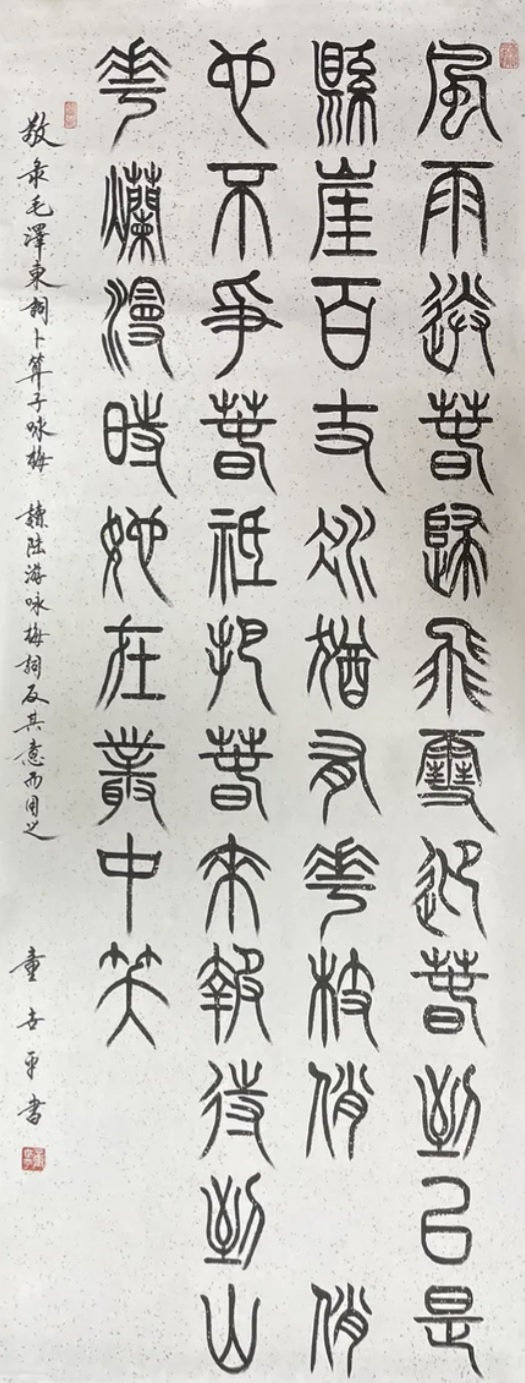 風雨送春歸飛雪迎春到已是
縣崖百丈冰猶有花枝俏 俏
也不爭春祗把春來報待到山
花爛漫時她在叢中笑
敬录毛澤東詞卜算子咏梅 讀陸游咏梅詞反其意而用之 童世平書